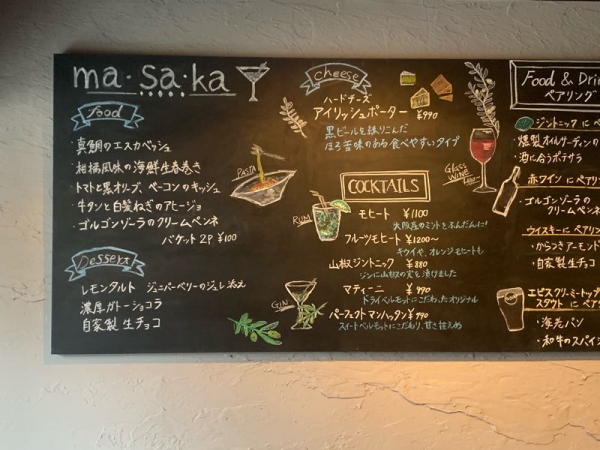 ma・sa・ka
food
真鯛のエスカベッシュ
柑橘風味の海鮮生春巻き
トマトと黒オリーブ、ベーコンのキッシュ
牛タンと白髪ねぎのアヒージョ
ゴルゴンゾーラのクリームペンネ
バゲット2P ¥100
Dessert
レモンタルト ジュニパーベリーのジュレ添え
濃厚ガトーショコラ
自家製 生チョコ
PASTA
cheese
ハードチーズ
アイリッシュポーター ¥990
黒ビールを練りこんだ
ほろ苦味のある食べやすいタイプ
COCKTAILS
RUM
モヒート ¥1100
大阪産のミントをふんだんに!
フルーツモヒート ¥1200~
キウイや、オレンジモヒートも
山椒ジントニック ¥880
ジンに山椒の実を漬けました
GIN
マティーニ ¥990
ドライベルモットにこだわったオリジナル
パーフェクトマンハッタン ¥990
スイートベルモットにこだわり、甘さ控えめ
Glass
WINE
Food & Drin
ペアリング
ジントニック に ペ
燻製オイルサーディンの
酒に合うポテサラ
赤ワイン に ペアリン
ゴルゴンゾーラの
クリームペン
ウイスキー に ペアリン
かちわりアーモンド
自家製生チョコ
エピスクリ・ミートップ
スタウト に ペア
海老パン
和牛のスパイシ